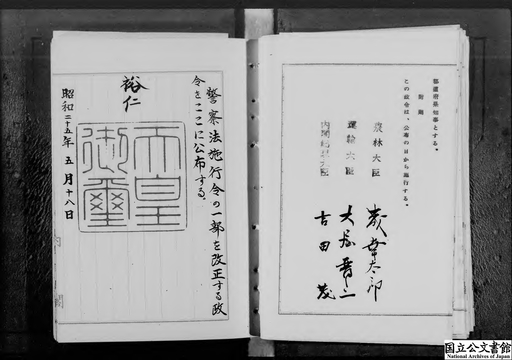 都道府県知事とする。
附則
この政令は、公布の日から施行する。
農林大臣
運輸大臣
内閣総理大臣
太郎
大屋晋三
吉田茂
警察法施行令の一部を改正する政
令をここに公布する。
裕仁
天皇
御璽
昭和二十五年五月十八日
国立公文書館
National Archives of Japan